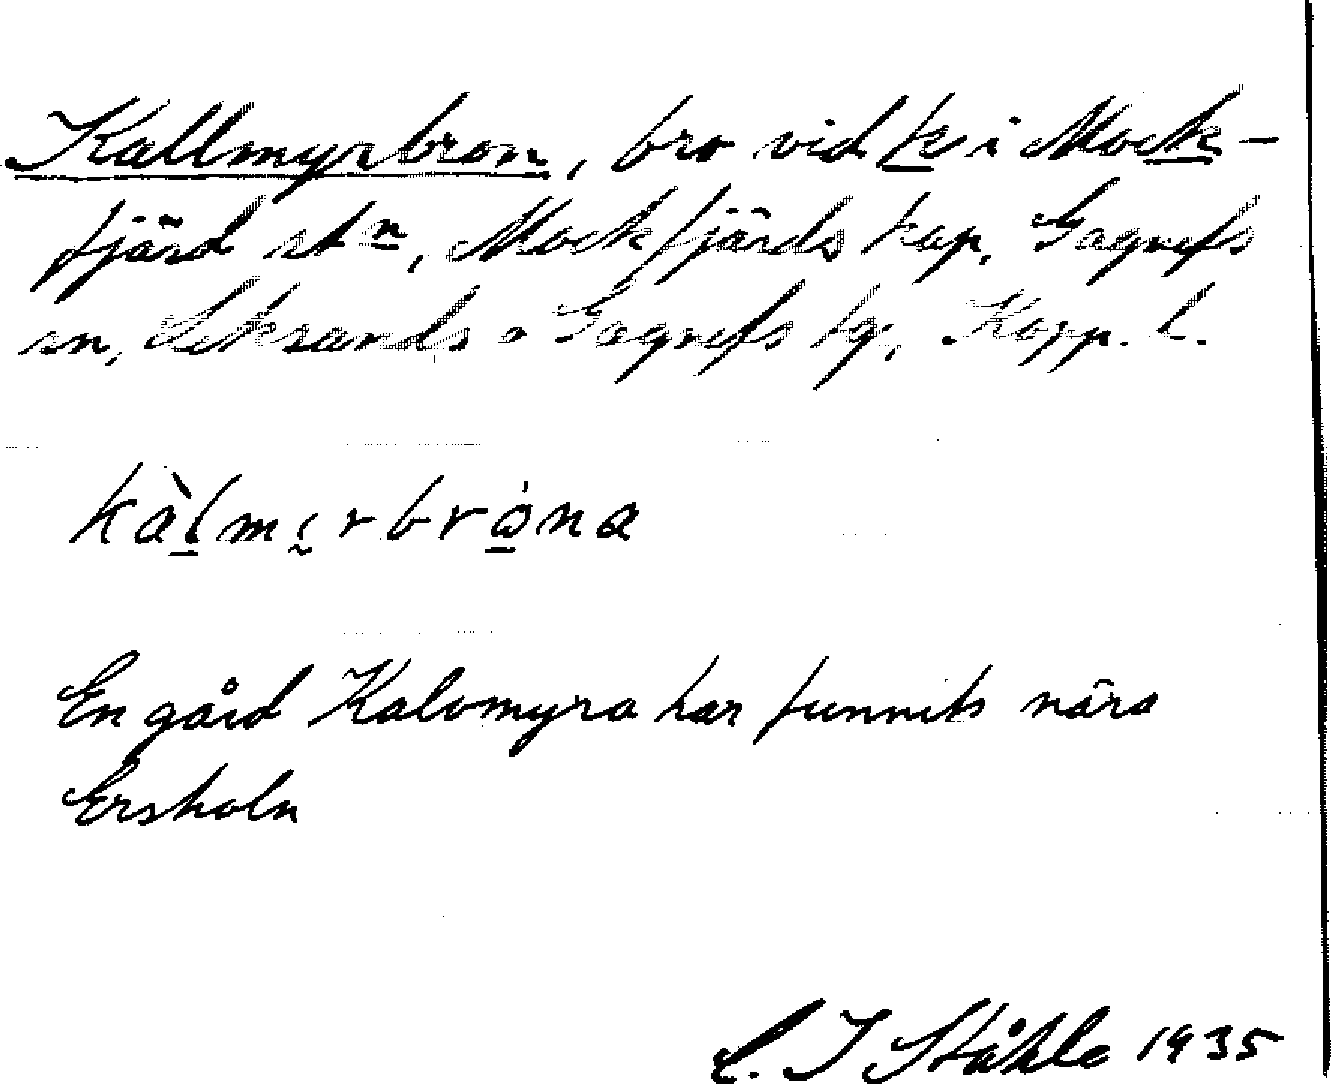 Kallmyrbron, bro vid k i Mock-
fjärd stn, Mockfjärds kap, Gagnefs
sn, Leksands o Gagnefs tg, Kopp. l.
En gård Kalvmyra har funnits nära
Ersholn
C. I Ståhle 1935